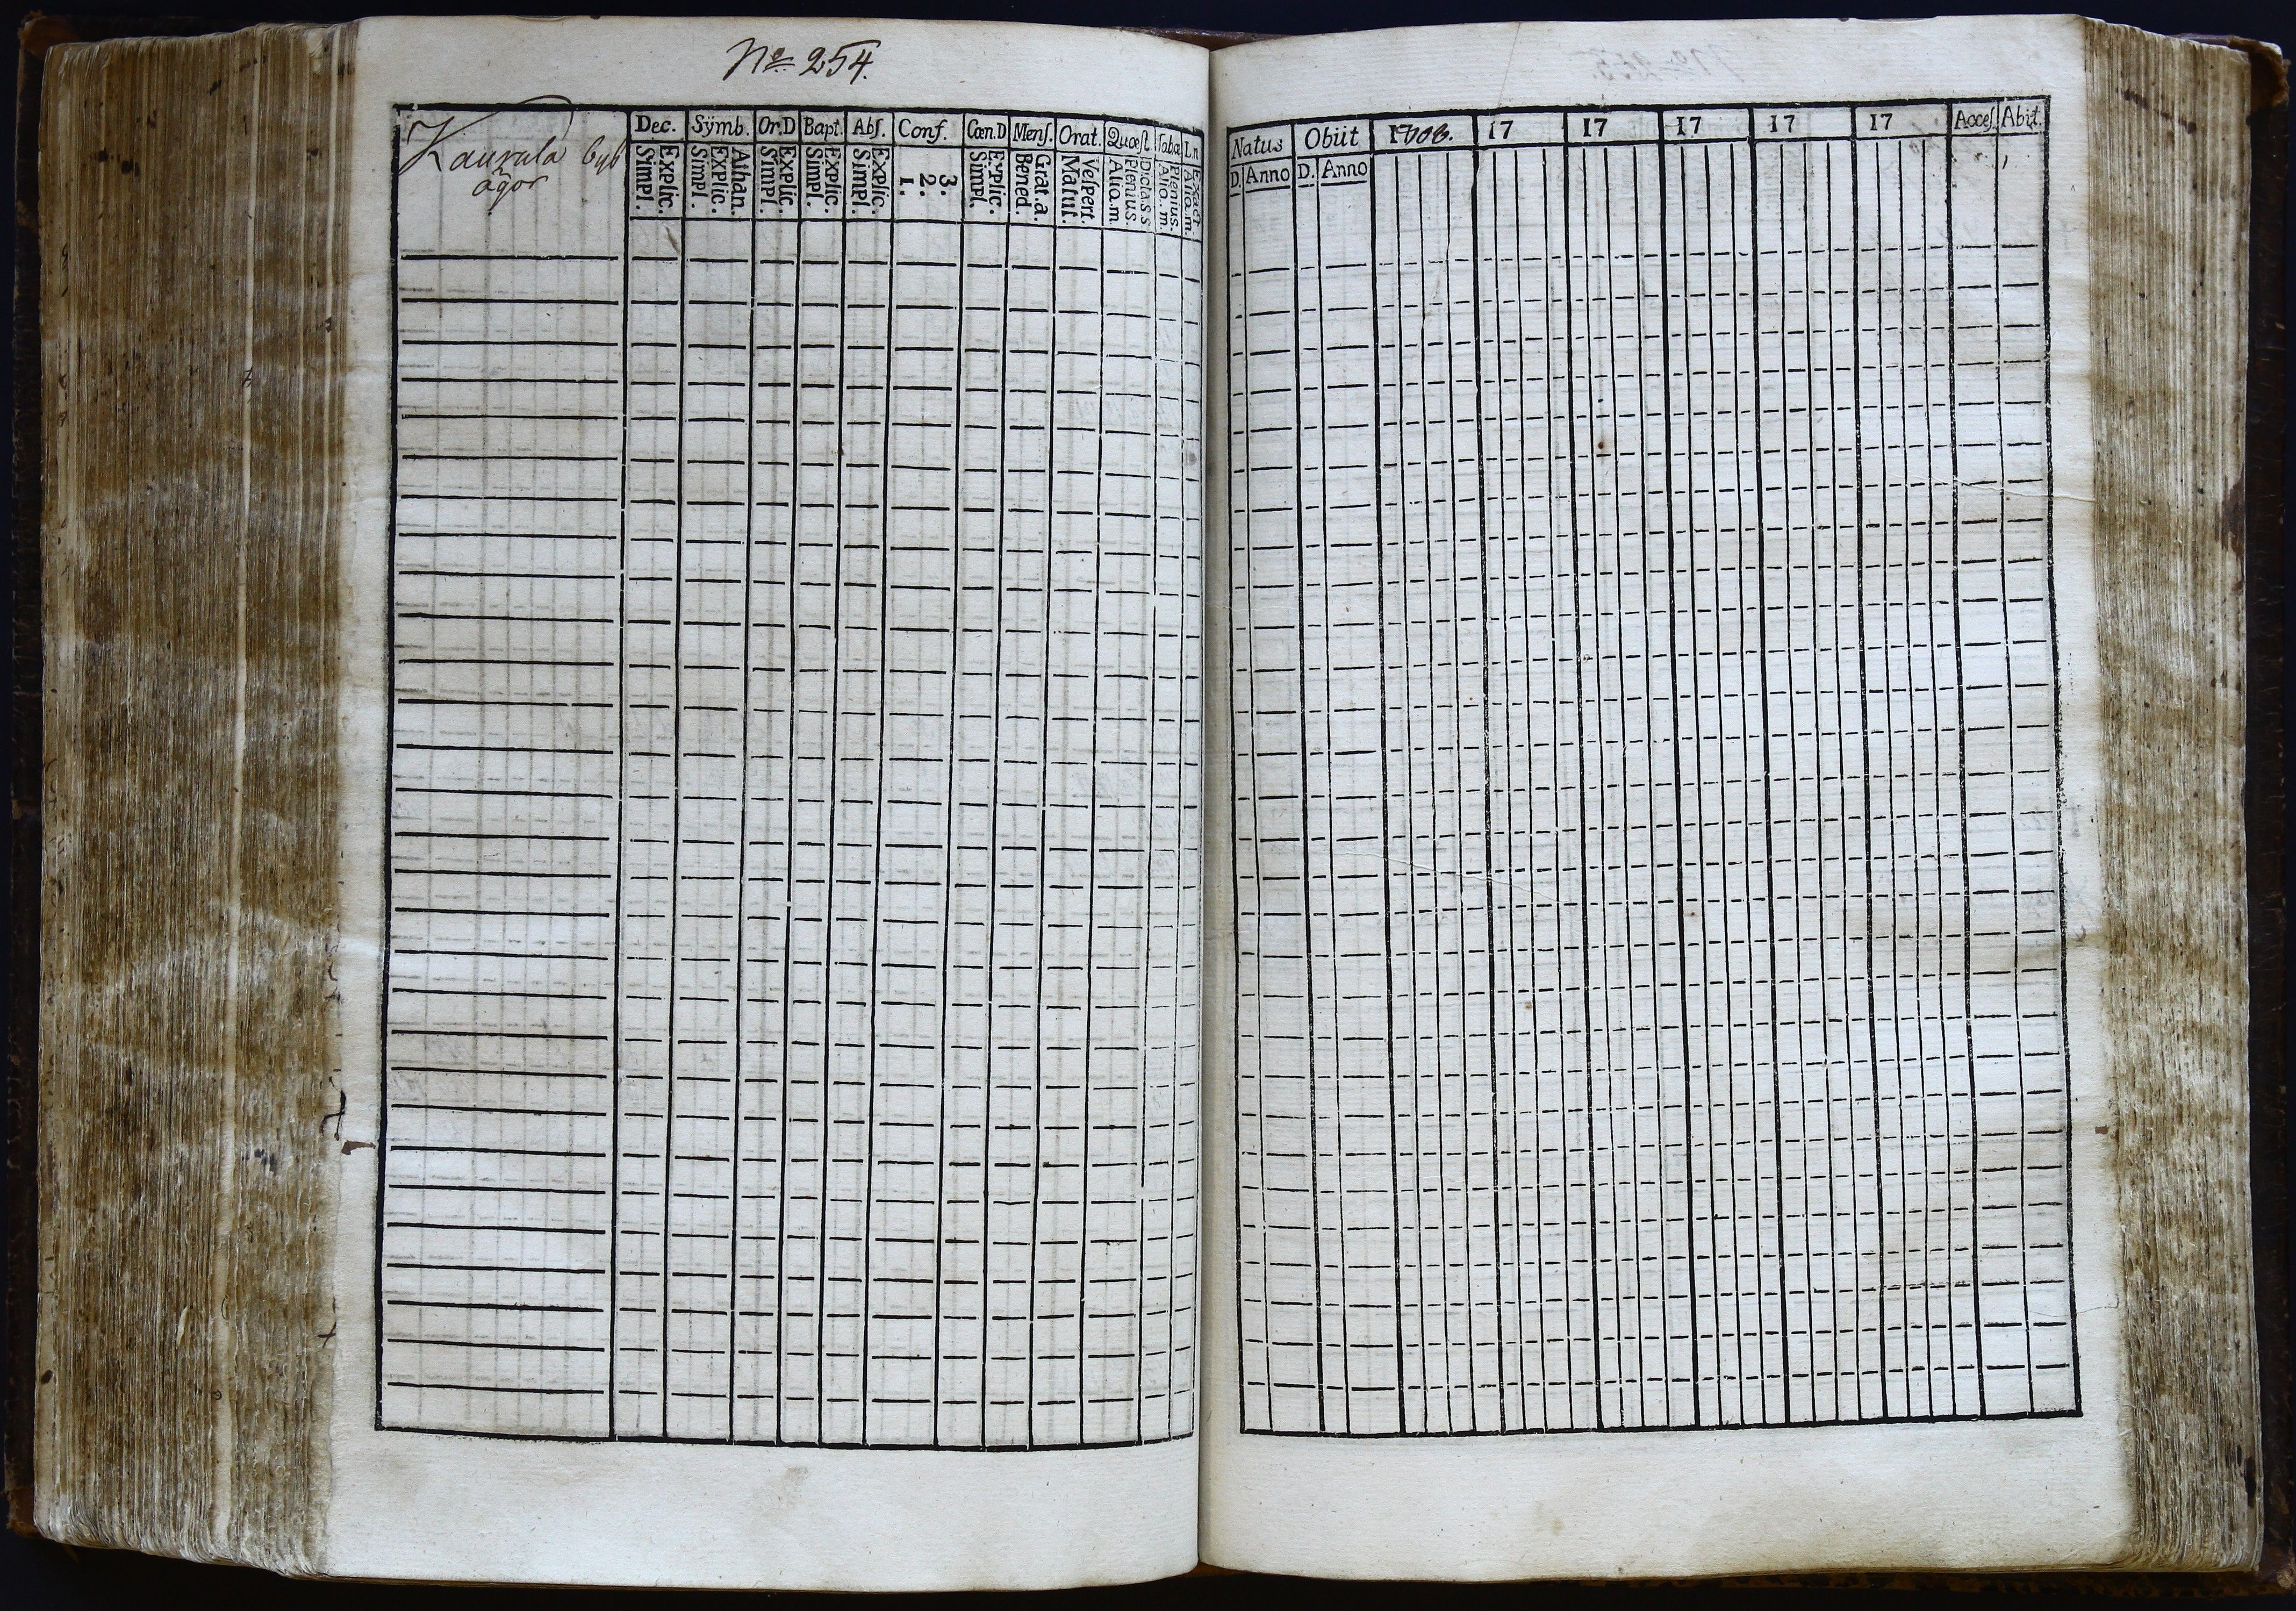 No 254.
Kaurala byb
ägor
Dec. Sÿmb. Or.D Bapt. Abſ. Conf. Cœn.D Menſ. Orat. Quœſt. Ln
Explic.
Simpl.
Athan.
Explic.
Simpl.
Explic.
Simpl.
Explic.
Simpl.
Explic.
Simpl.
3.
2.
1.
Explic.
Simpl.
Grat. a
Bened.
Veſpert.
Matut.
Dicta.s.s
Plenius.
Alio.m
Plenius.
Alio.m.
Exact
Alio.m.
Natus Obiit 1808. 17 17 17 17 17 Acceſ. Abit.
D. Anno D. Anno